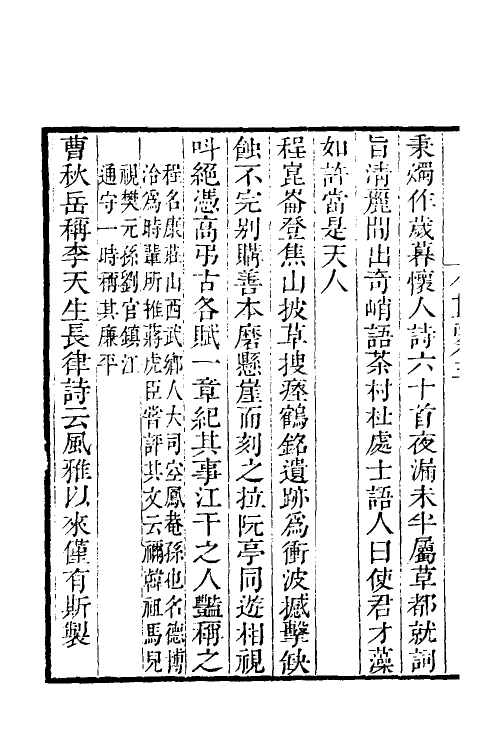 秉燭作歲暮懷人詩六十首夜漏未半屬草都就詞
旨清麗間出奇峭語茶村杜處士語人曰使君才藻
如許當是天人
程崑崙登焦山披草搜瘞鶴銘遺跡為衝波撼擊缺
蝕不完别購善本磨懸崖而刻之拉阮亭同遊相視
呌絕憑高弔古各賦一章紀其事江干之人豔稱之
程名康莊山西武鄉人大司空鳳菴孫也名德博
洽為時輩所推蔣虎臣嘗評其文云禰韓祖馬兒
視樊元孫劉官鎮江
通守一時稱其廉平
曹秋岳稱李天生長律詩云風雅以來僅有斯製